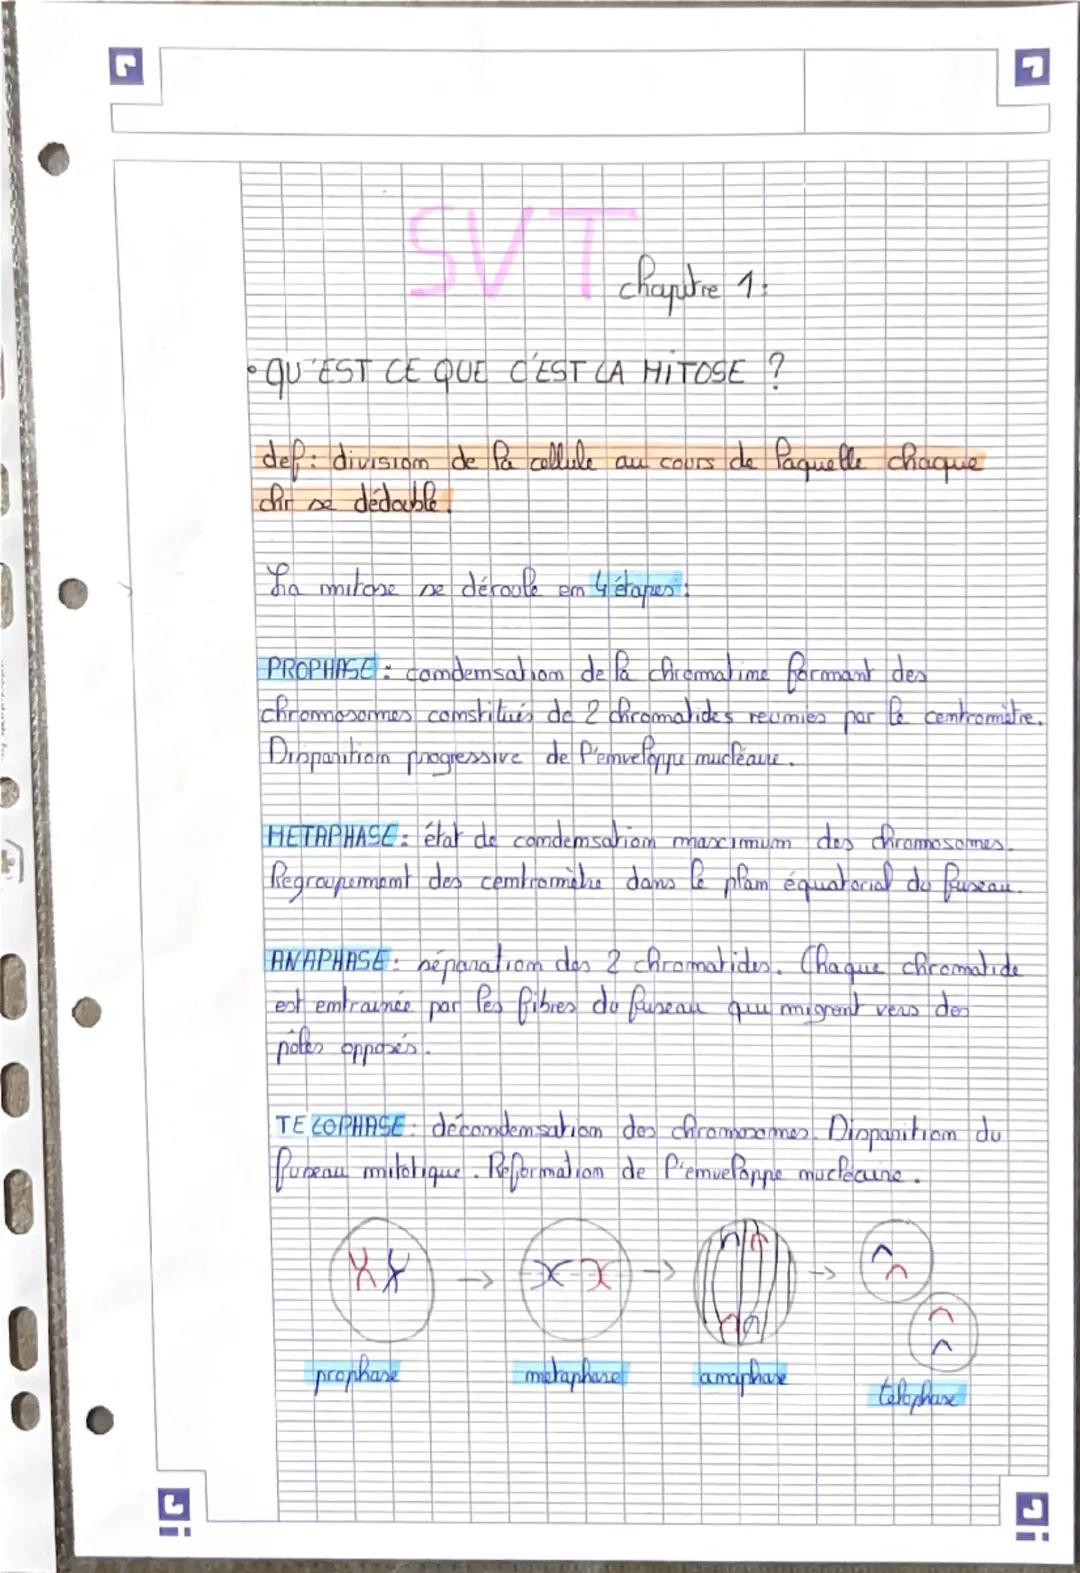 SVT
chapitre 1:
• QU'EST CE QUE C'EST LA MITOSE ?
def: division de la cellule au cours de laquelle chaque
chr se dédouble.
La mitose se déroule en 4 étapes:
PROPHASE: condensation de la chromatine formant des
chromosomes constitués de 2 chromatides reunies par le centromètre.
Disparition progressive de l'enveloppe nucléaire.
METAPHASE: état de condensation maximum des chromosomes.
Regroupement des centromètre dans le plan équatorial du fuseau.
ANAPHASE: séparation des 2 chromatides. Chaque chromatide
est entrainée par les fibres du fuseau qui migrent vers des
pôles opposés.
TELOPHASE: décondensation des chromosomes. Disparition du
fuseau mitotique. Reformation de l'enveloppe nucléaire.
prophase metaphase anaphase telophase